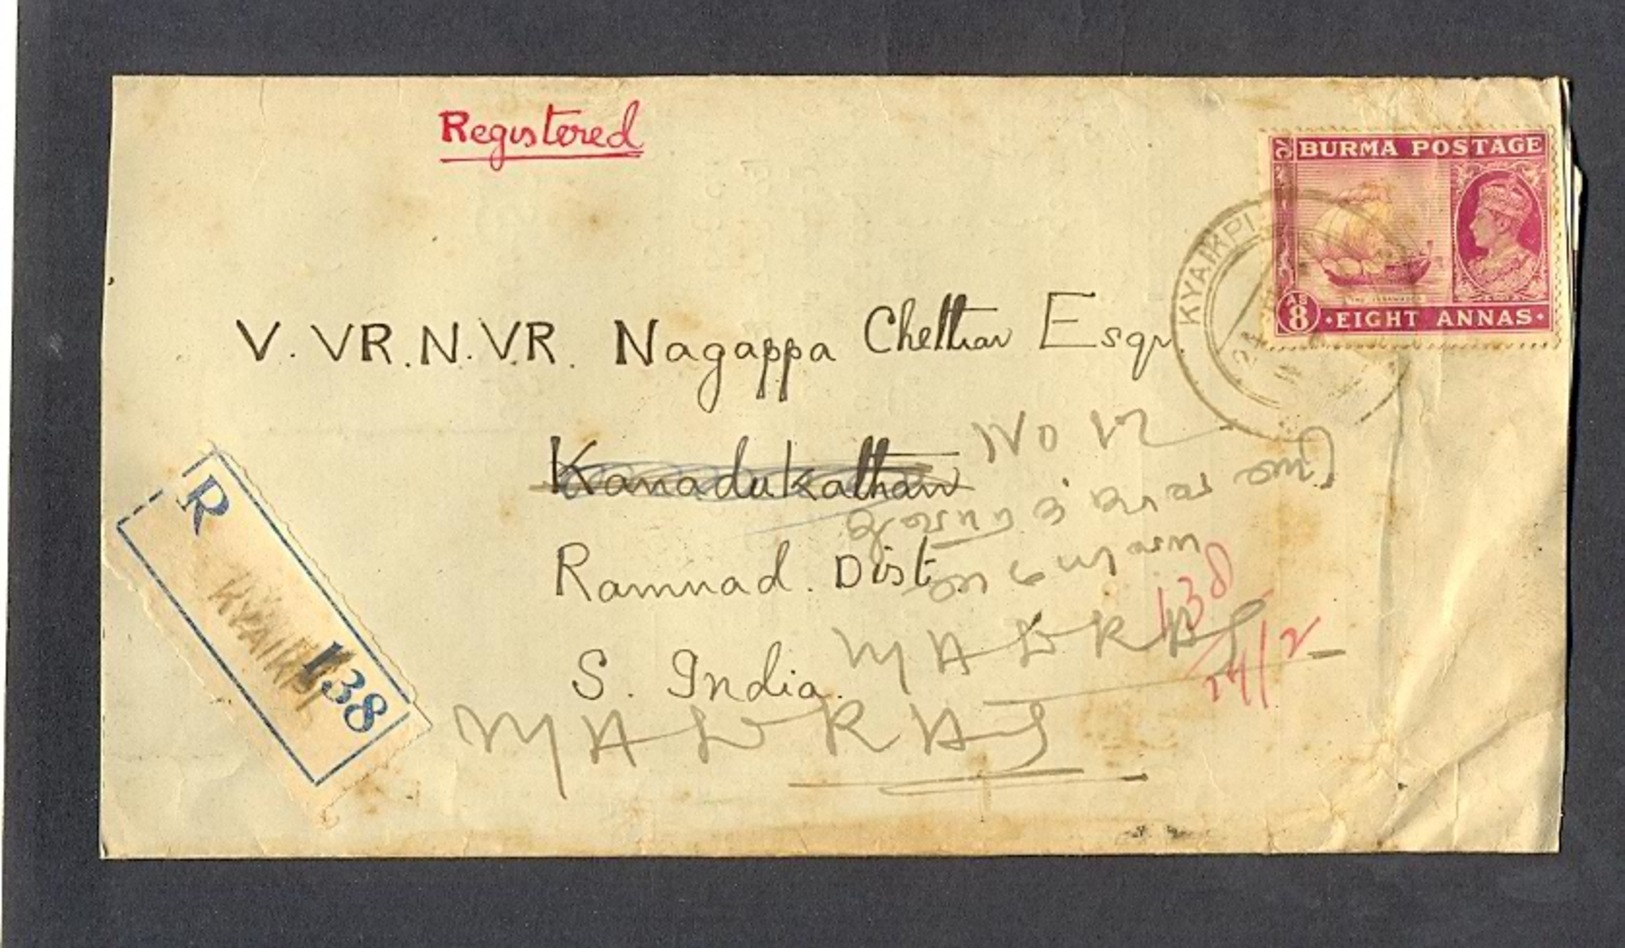 Registered
BURMA POSTAGE
AS 8 · EIGHT ANNAS ·
KYAIKPI
V. VR.N.VR. Nagappa Chettiar Esqr.
Kanadukathan
No 12
Ramnad. Dist
S. India.
MADRAS
MADRAS
138
R
KYAIKPI
138